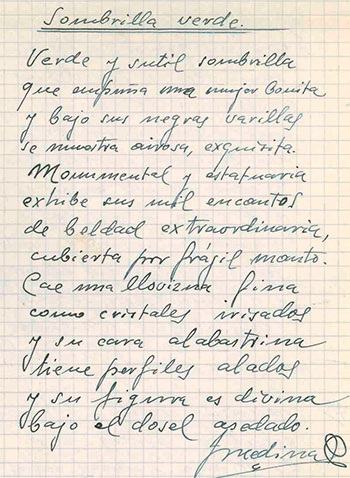 Sombrilla verde.
Verde y sutil sombrilla
que empuña una mujer bonita
y bajo sus negras varillas
se muestra airosa, exquisita.
Monumental y estatuaria
exhibe sus mil encantos
de beldad extraordinaria,
cubierta por frágil manto.
Cae una llovizna fina
como cristales irisados
y su cara alabastrina
tiene perfiles alados
y su figura es divina
bajo el dosel asedado.
Jmedina